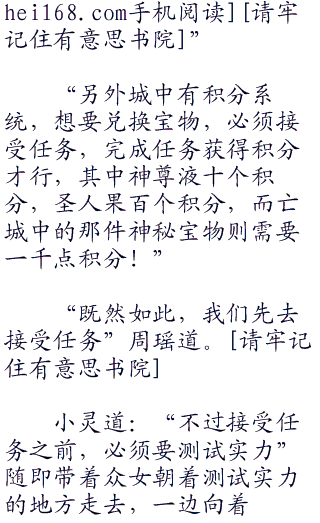 hei168.com手机阅读][请牢
记住有意思书院]”
“另外城中有积分系
统，想要兑换宝物，必须接
受任务，完成任务获得积分
才行，其中神尊液十个积
分，圣人果百个积分，而亡
城中的那件神秘宝物则需要
一千点积分！”
“既然如此，我们先去
接受任务”周瑶道。[请牢记
住有意思书院]
小灵道：“不过接受任
务之前，必须要测试实力”
随即带着众女朝着测试实力
的地方走去，一边向着